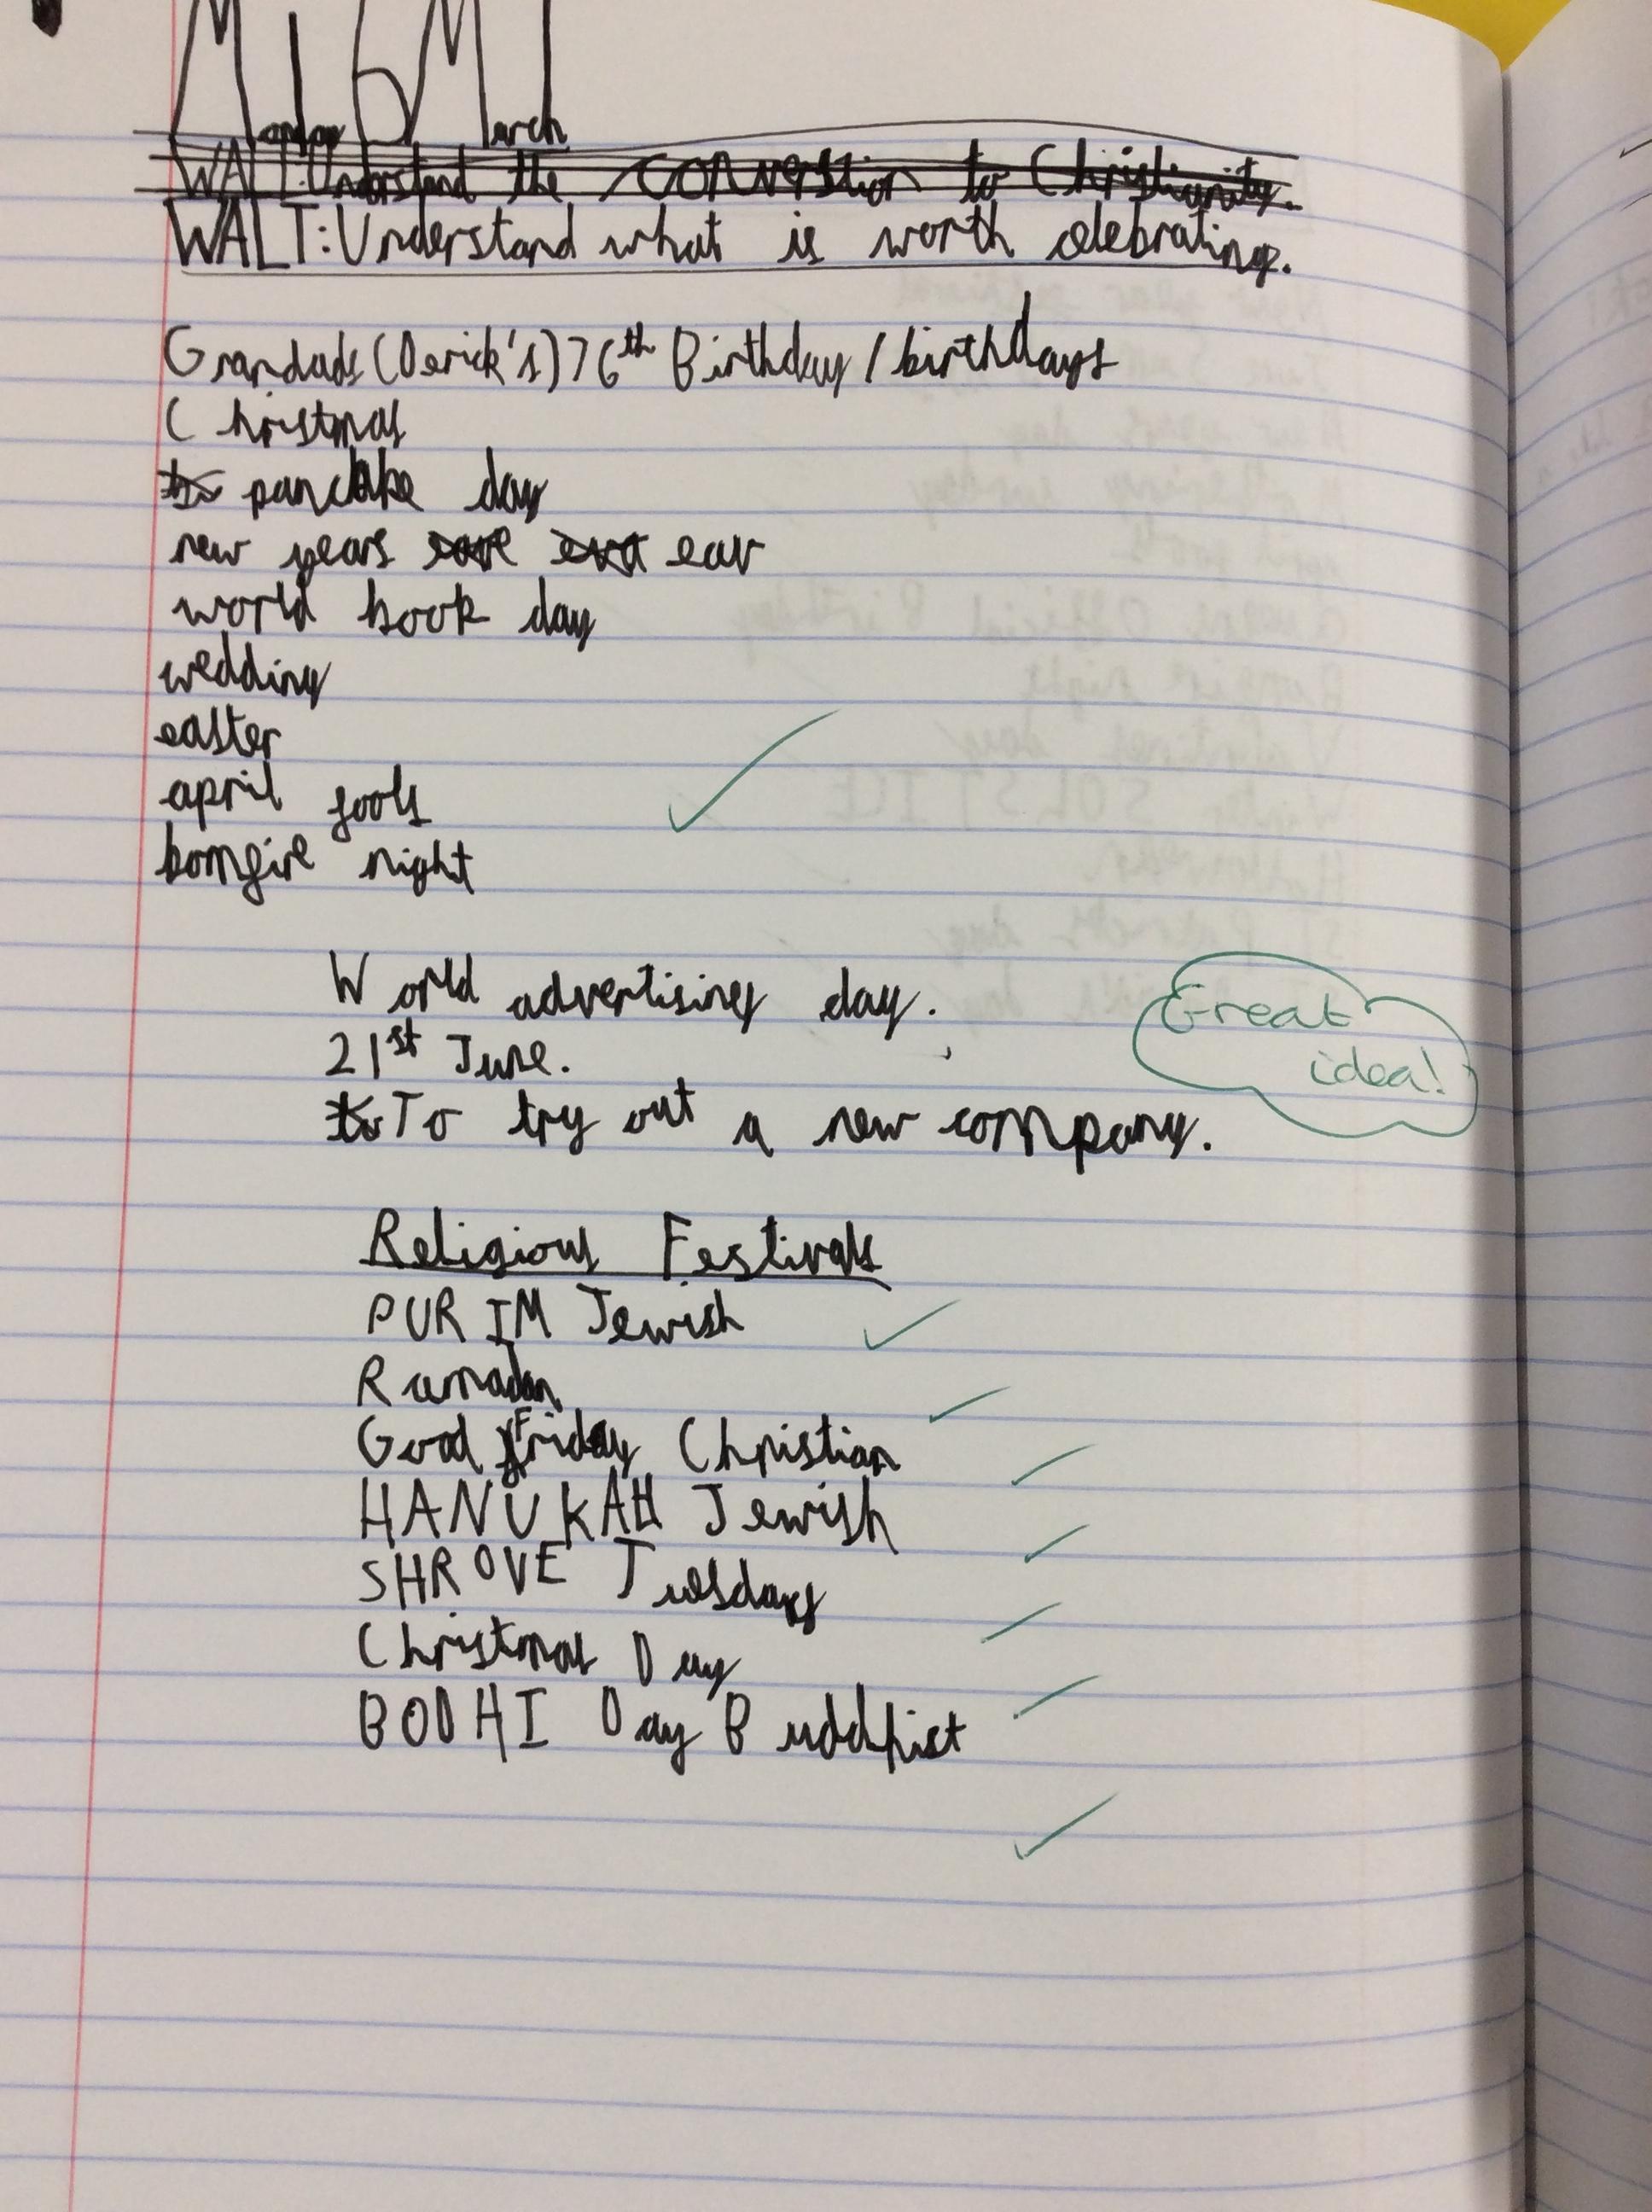 Monday 16 March
WALT: Understand the conversion to Christianity.
WALT: Understand what is worth celebrating.
Grandads (Derick's) 76th Birthday / birthdays
Christmas
pancake day
new years eav
world book day
wedding
easter
april fools
bomfire night
World advertising day.
21st June.
Great
idea!
To try out a new company.
Religious Festivals
PURIM Jewish
Ramadan
Good Friday Christian
HANUKAH Jewish
SHROVE Tuesdays
Christmas Day
BODHI Day Buddhist